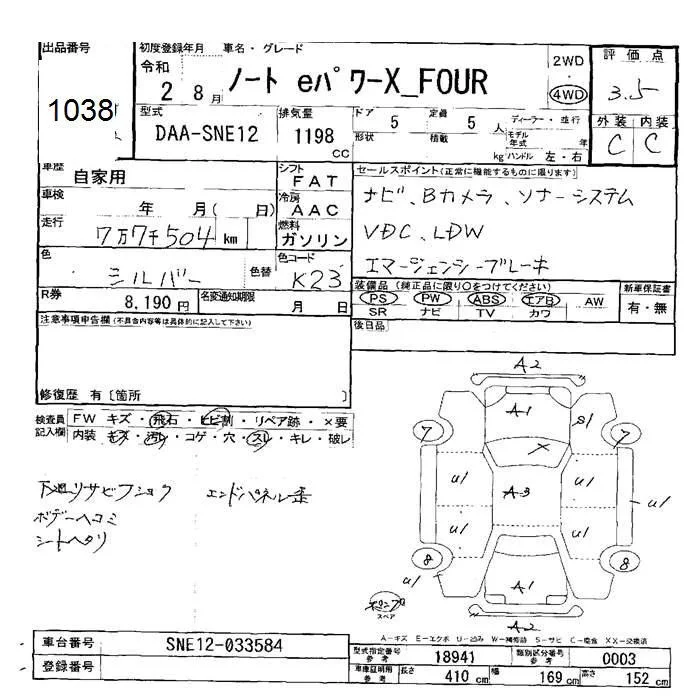 出品番号 1038
初度登録年月 令和 2 8月
車名・グレード ノート eパワーX_FOUR
2WD
4WD
評価点 3.5
外装 内装
C C
型式 DAA-SNE12
排気量 1198 cc
ドア 5 形状
定員 5 人 積載 kg
ディーラー・並行
モデル年式 年式
ハンドル 左・右
車歴 自家用
シフト FAT
車検 年 月( 日)
冷房 AAC
走行 7万7千504 km
燃料 ガソリン
色 シルバー 色替
色コード K23
R券 8,190 円
名変通知期限 月 日
セールスポイント(正常に機能するものに限ります)
ナビ、Bカメラ、ソナーシステム
VDC、LDW
エマージェンシーブレーキ
装備品(純正品に限り○をつけてください)
PS PW ABS エアB AW
SR ナビ TV カワ
新車保証書
有・無
後日品
注意事項申告欄(不具合内容等は具体的に記入して下さい)
修復歴 有〔箇所 〕
検査員記入欄
FW キズ・飛石・ヒビ割・リペア跡・×要
内装 キズ・汚レ・コゲ・穴・スレ・キレ・破レ
下廻リサビフショク エンドパネル歪
ボデーヘコミ
シートヘタリ
A2
A1
S1
7
7
X
U1
U1
A3
U1
U1
U1
8
8
U1
A1
スペア
A2
A-キズ E-エクボ U-凹み W-補修跡 S-サビ C-腐食 XX-交換済
車台番号 SNE12-033584
登録番号
型式指定番号 参考 18941
類別区分番号 参考 0003
車庫証明用 参考 長さ 410 cm 幅 169 cm 高さ 152 cm